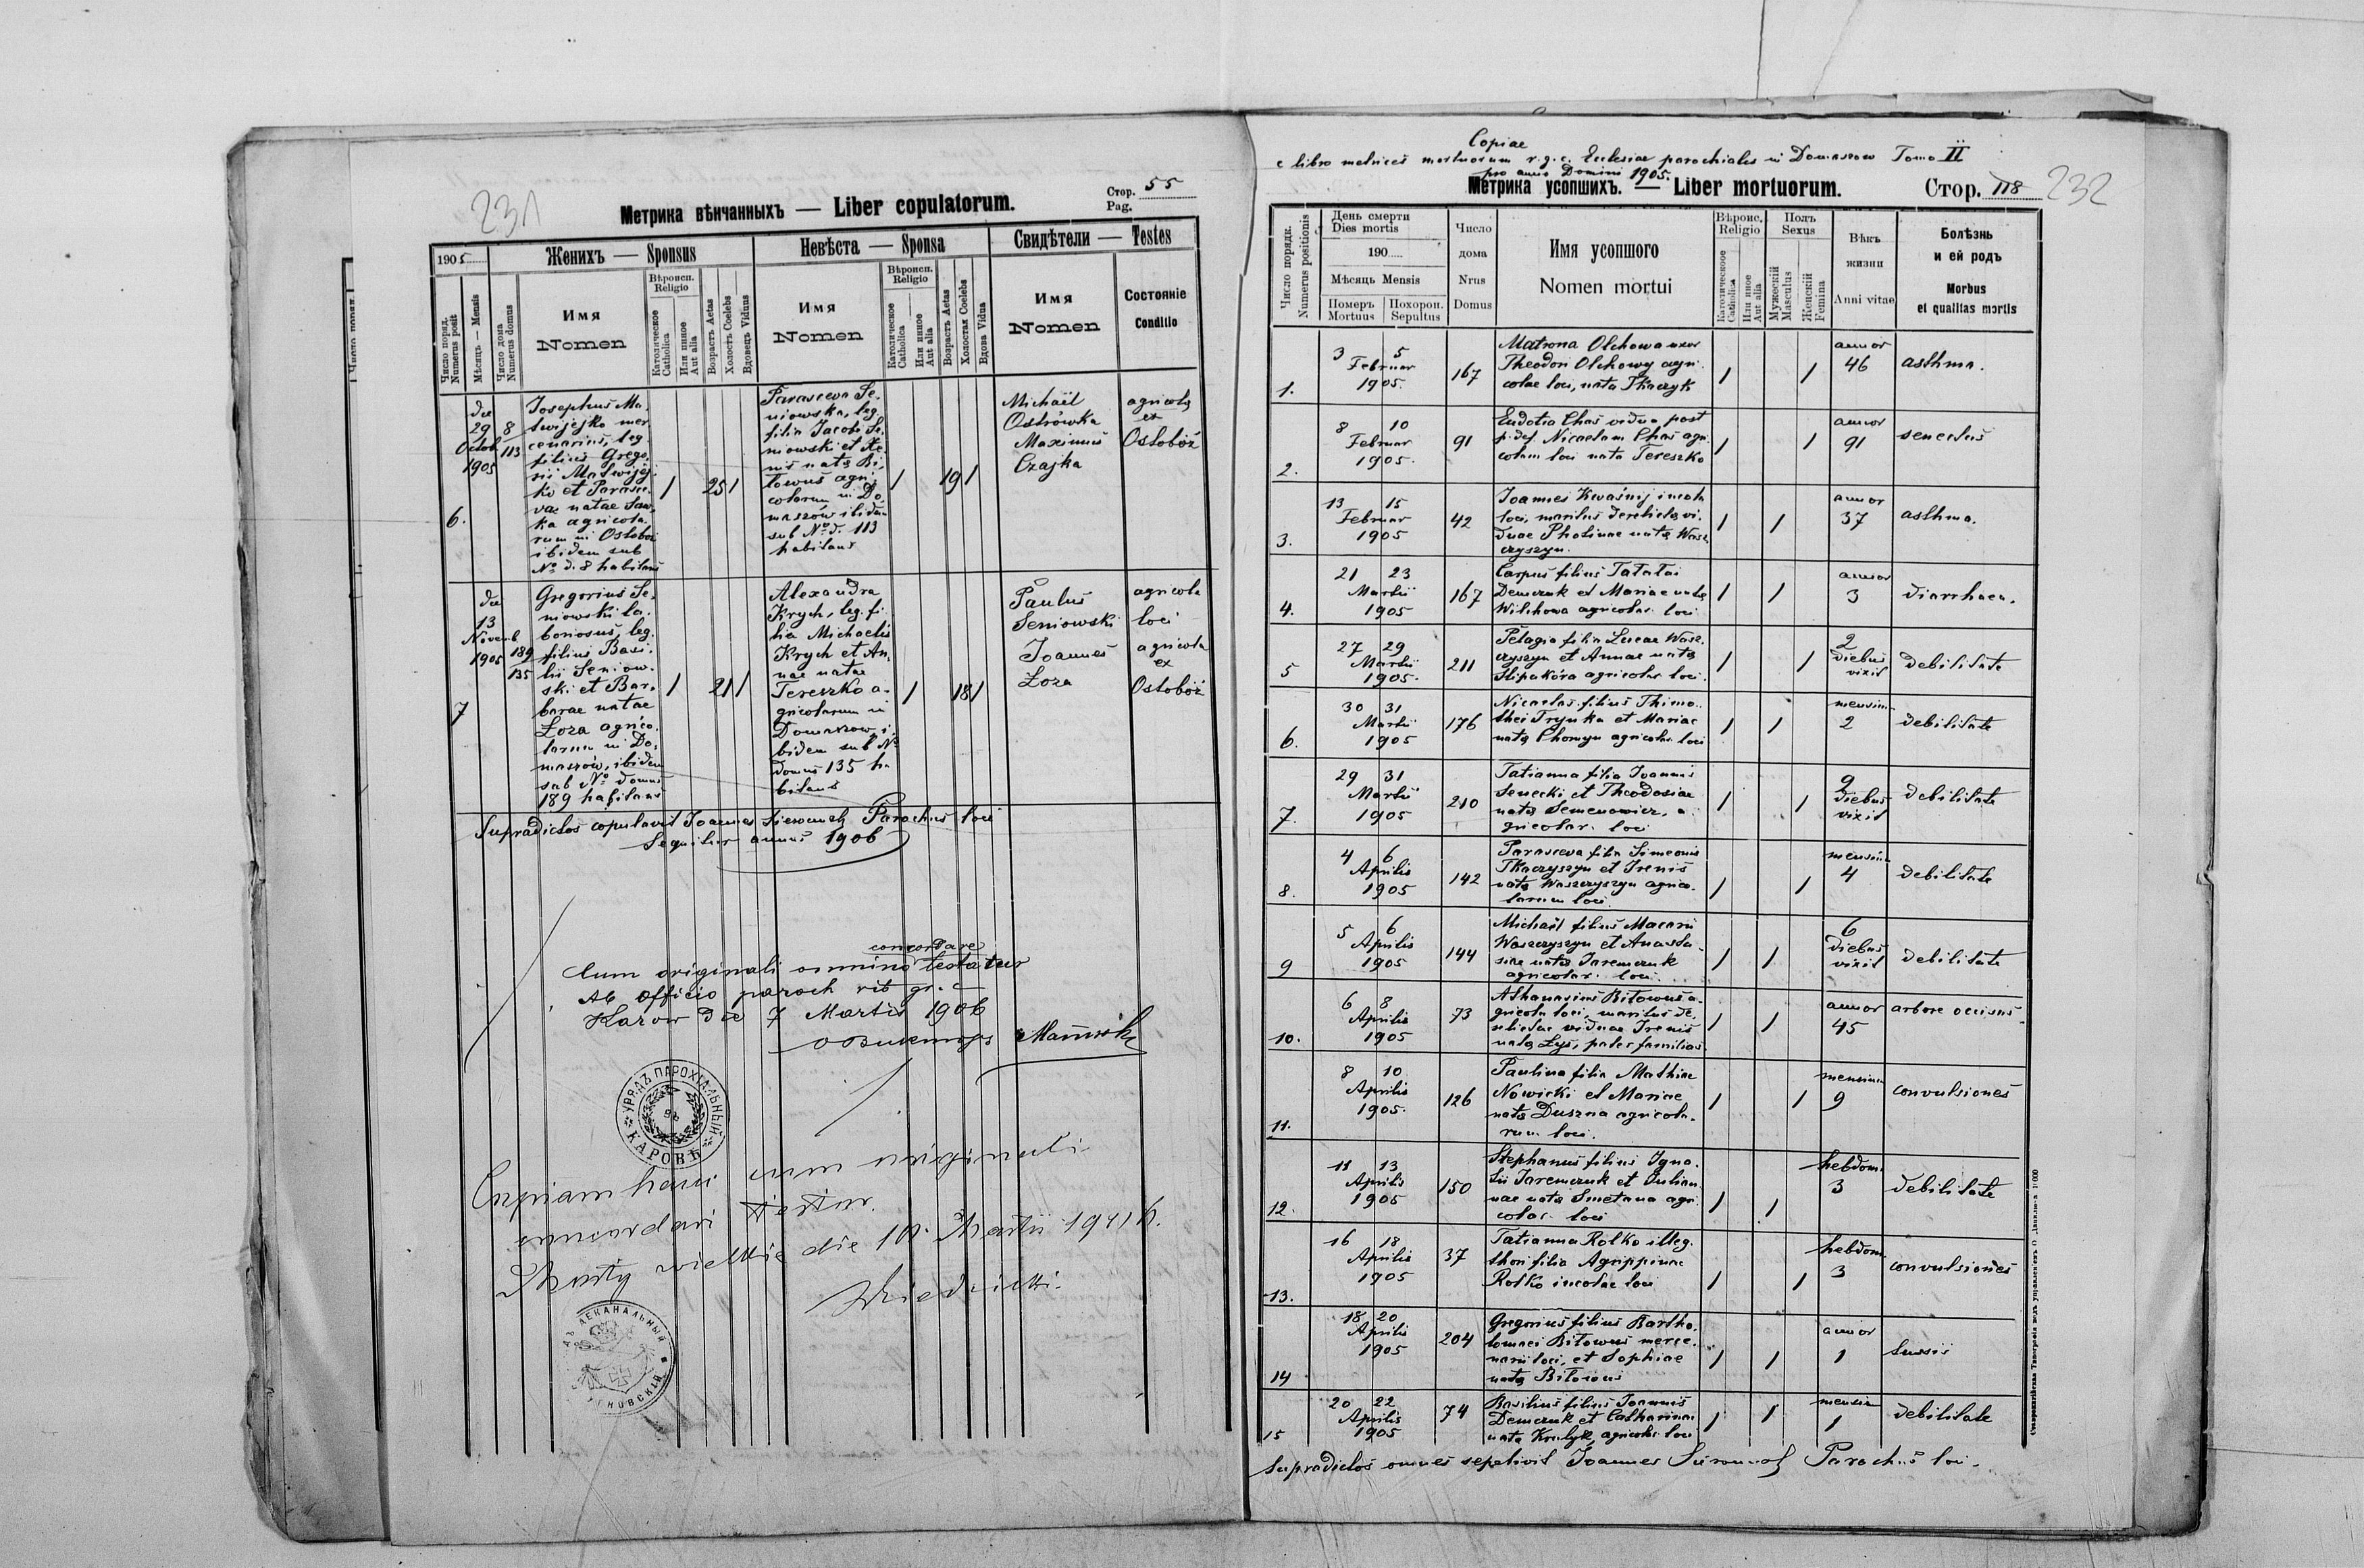 231
Метрика вѣнчанныхъ — Liber copulatorum.
Стор. 55
Pag.
1905
Женихъ — Sponsus
Невѣста — Sponsa
Свидѣтели — Testes
Число поряд.
Numerus posit
Мѣсяць — Mensis
Число дома
Numerus domus
Имя
Nomen
Вѣроисп.
Religio
Католическое
Catholica
Или инное
Aut alia
Возрастъ Aetas
Холостъ Coelebs
Вдовецъ Viduus
Имя
Nomen
Вѣроисп.
Religio
Католическое
Catholica
Или инное
Aut alia
Возрастъ Aetas
Холостая Coelebs
Вдова Vidua
Имя
Nomen
Состояніе
Conditio
6.
die
29
Octob
1905
8
113
Josephus Ma-
twijejko mer
cenarius, leg.
filius Grego-
rii Matwijej-
ko et Parasce-
vae natae Saw-
ka agricola-
rum in Ostoboż
ibidem sub
No d. 8 habitans
1
25
1
Parasceva Se-
niowska, leg.
filia Jacobi Se-
niowski et Xe-
nis nata Bi-
towus agri-
colarum in Do-
maszów ibidem
sub No d. 113
habitans
1
19
1
Michaël
Ostrówka
Maximus
Czajka
agricola
ex
Ostobóż
7
die
13
Novemb
1905
189
135
Gregorius Se-
niowski la-
boriosus, leg.
filius Basi-
lii Seniow-
ski et Bar-
barae natae
Łoza agrico-
larum in Do-
maszów, ibidem
sub No domus
189 habitans
1
21
1
Alexandra
Krych, leg. fi-
lia Michaelis
Krych et An-
nae natae
Tereszko a-
gricolarum in
Domaszow, i-
bidem sub No
domus 135 ha-
bitans
1
18
1
Paulus
Seniowski
Joannes
Łoza
agricola
loci
agricola
ex
Ostobóż
Supradictos copulavit Joannes Parochus loci
Sequitur annus 1906
concordare
Cum originali omnino testatur
Ab Officio paroch rit gr. c
Karow die 7 Martii 1906
УРЯДЪ ПАРОХІАЛЬНЫЙ
КАРОВѢ
Copiam hanc cum originali
concordari testor.
die 10. Martii 1941
ДЕКАНАЛЬНЫЙ
Copiae
e libro metrices mortuorum r.g.c. Ecclesiae parochialis in Domaszow Tomo II
pro anno Domini 1905.
Метрика усопшихъ. — Liber mortuorum.
Стор. 118
232
Число порядк.
Numerus positionis
День смерти
Dies mortis
190
Мѣсяць Mensis
Померъ
Mortuus
Похорон.
Sepultus
Число
дома
Nrus
Domus
Имя усопшого
Nomen mortui
Вѣроис.
Religio
Католическоое
Catholica
Или иное
Aut alia
Полъ
Sexus
Мужескій
Masculus
Женскій
Femina
Вѣкъ
жизни
Anni vitae
Болѣзнь
и ей родъ
Morbus
et qualitas mortis
1.
3 5
Februar
1905
167
Matrona Olchowa uxor
Theodori Olchowy agri-
colae loci, nata Tkaczyk
1
1
annor
46
asthma.
2.
8 10
Februar
1905.
91
Eudotia Chaś vidua post
p. def Nicaolam Chaś agri-
colam loci nata Tereszko
1
1
annor
91
senectus
3.
13 15
Februar
1905
42
Joannes Kwaśnij incola
loci, maritus derelicta vi-
duae Photinae nata Wasz-
czyszyn.
1
1
annor
37
asthma.
4.
21 23
Martii
1905
167
Carpus filius
Demczuk et Mariae nata
Wilchowa agricolar. loci
1
1
annor
3
diarrhaea.
5
27 29
Martii
1905.
211
Pelagia filia Lucae Wasz-
czyszyn et Annae nata
Ślipakóra agricolar loci.
1
1
2
diebus
vixit
debilitate
6.
30 31
Martii
1905
176
Nicaolas filius Thimo-
thei Trynka et Mariae
nata Chomyn agricolar. loci
1
1
mensium
2
debilitate
7.
29 31
Martii
1905
210
Tatianna filia Joannis
Senecki et Theodosiae
nata Semenowicz, a-
gricolar. loci
1
1
9
diebus
vixit
debilitate
8.
4 6
Aprilis
1905
142
Parasceva filia Simeonis
Tkaczyszyn et Irenis
nata Waszczyszyn agrico-
larum loci
1
1
mensium
4
debilitate
9
5 6
Aprilis
1905
144
Michaël filius Macarii
Waszczyszyn et Anasta-
siae nata Jaremczuk
agricolar. loci
1
1
6
diebus
vixit
debilitate
10.
6 8
Aprilis
1905
73
Athanasius Bitowus a-
gricola loci, maritus de-
relictae viduae Irenis
nata Łyś, pater familias
1
1
annor
45
arbore occisus
11.
8 10
Aprilis
1905.
126
Paulina filia Mathiae
Nowicki et Mariae
nata Duszna agricola-
rum loci.
1
1
mensium
9
convulsiones
12.
11 13
Aprilis
1905
150
Stephanus filius Igna-
tii Jaremczuk et Julian-
nae nata Smetana agri-
colar. loci
1
1
hebdom.
3
debilitate
13.
16 18
Aprilis
1905
37
Tatianna Rotko illeg.
thori filia Agrippinae
Rotko incolae loci
1
1
hebdom.
3
convulsiones
14
18 20
Aprilis
1905
204
Gregorius filius Bartho-
lomaei Bitowus merce-
narii loci, et Sophiae
nata Bitowus
1
1
annor
1
tussis
15
20 22
Aprilis
1905
74
Basilius filius Joannis
Demczuk et Catharinae
nata agricolar loci
1
1
mensium
1
debilitate
Supradictos omnes sepelivit Joannes Parochus loci.